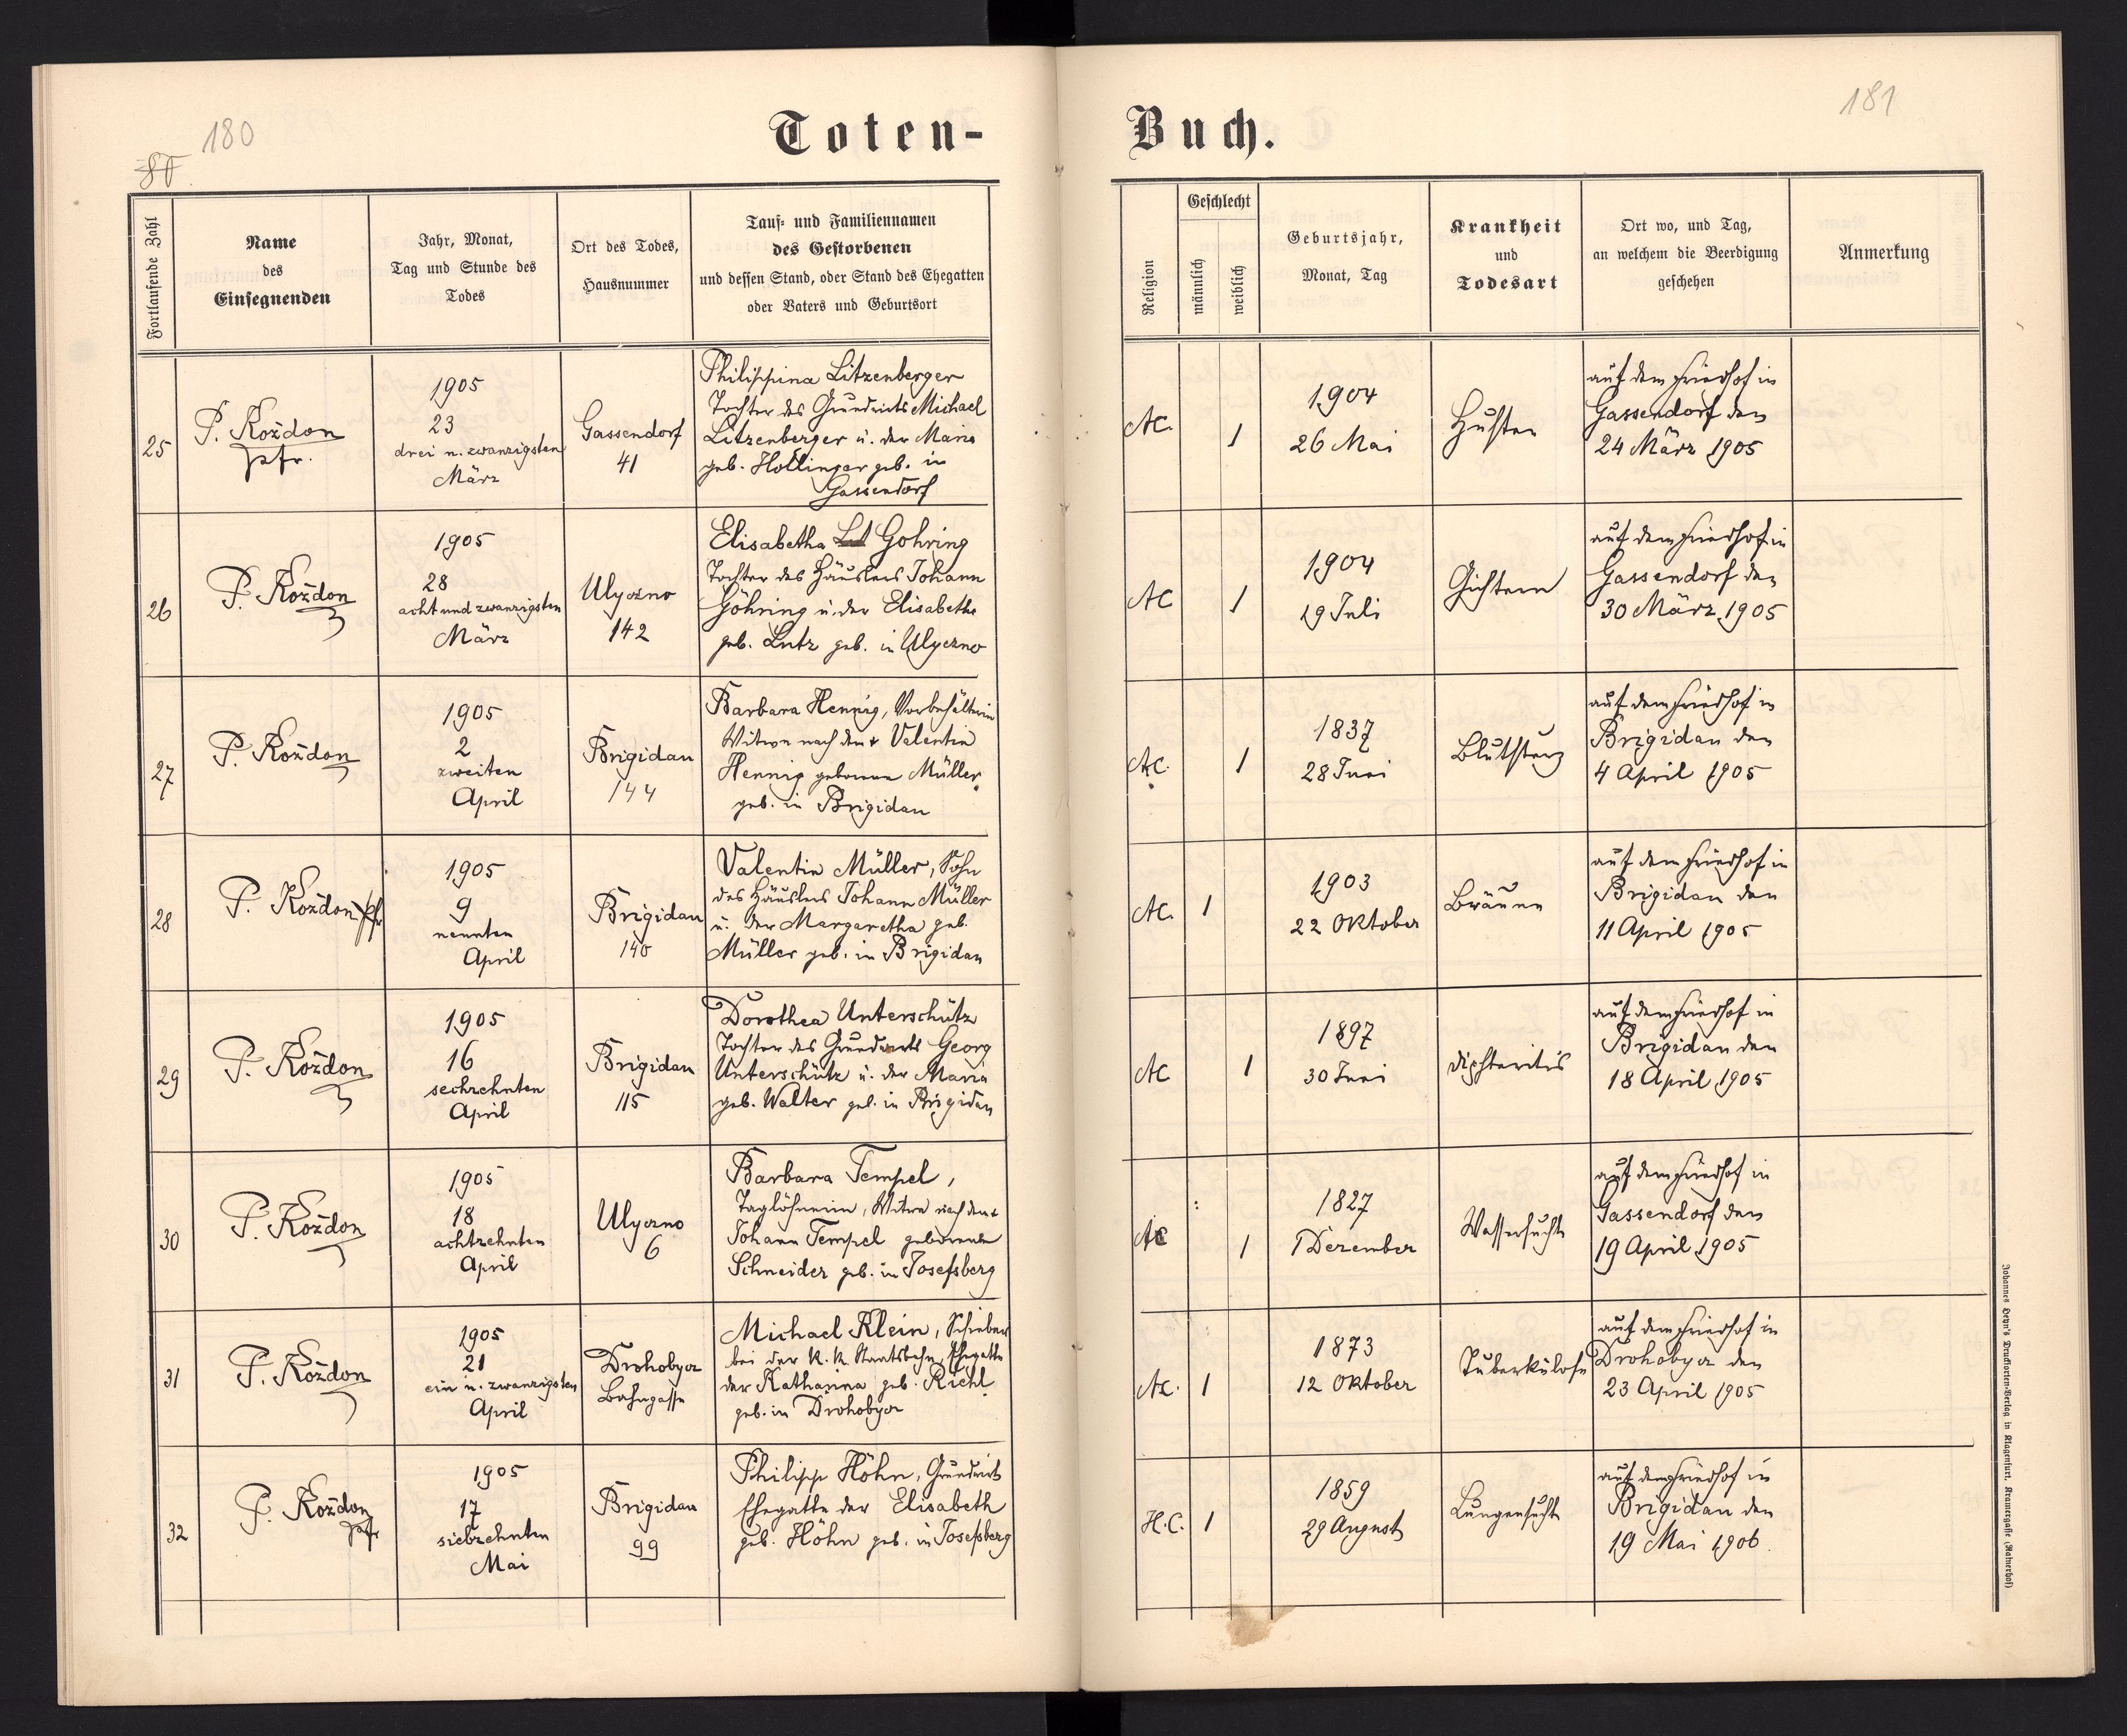 180
Toten-
Fortlaufende Zahl
Name
des
Einsegnenden
Jahr, Monat,
Tag und Stunde des
Todes
Ort des Todes,
Hausnummer
Tauf- und Familiennamen
des Gestorbenen
und dessen Stand, oder Stand des Ehegatten
oder Vaters und Geburtsort
25
P. Kożdon
pfr.
1905
23
drei u. zwanzigsten
März
Gassendorf
41
Philippina Litzenberger
Tochter des Grundwirts Michael
Litzenberger u. der Maria
geb. Hollinger geb. in
Gassendorf
26
P. Kożdon
1905
28
acht und zwanzigsten
März
Ulyczno
142
Elisabetha Gohring
Tochter des Häuslers Johann
Göhring u. der Elisabetha
geb. Lutz geb. in Ulyczno
27
P. Kożdon
1905
2
zweiten
April
Brigidau
144
Barbara Hennig, Vorbehälterin
Witwe nach dem + Valentin
Hennig geborene Müller
geb. in Brigidau
28
P. Kożdon pfr
1905
9
neunten
April
Brigidau
140
Valentin Müller, Sohn
des Häuslers Johann Müller
u. der Margaretha geb.
Müller geb. in Brigidau
29
P. Kożdon
1905
16
sechzehnten
April
Brigidau
115
Dorothea Unterschütz
Tochter des Grundwirts Georg
Unterschütz u. der Maria
geb. Walter geb. in Brigidau
30
P. Kożdon
1905
18
achtzehnten
April
Ulyczno
6
Barbara Tempel,
Taglöhnerin, Witwe nach dem +
Johann Tempel geborene
Schneider geb. in Josefsberg
31
P. Kożdon
1905
21
ein u. zwanzigsten
April
Drohobycz
Bahngasse
Michael Klein, Schieber
bei der K. K. Staatsbahn, Ehegatte
der Katharina geb. Richl
geb. in Drohobycz
32
P. Kożdon
pfr
1905
17
siebzehnten
Mai
Brigidau
99
Philipp Höhn, Grundwirt
Ehegatte der Elisabeth
geb. Höhn geb. in Josefsberg
181
Buch.
Religion
Geschlecht
männlich
weiblich
Geburtsjahr,
Monat, Tag
Krankheit
und
Todesart
Ort wo, und Tag,
an welchem die Beerdigung
geschehen
Anmerkung
AC.
1
1904
26 Mai
Husten
auf dem Friedhof in
Gassendorf den
24 März 1905
AC
1
1904
19 Juli
Gichtern
auf dem Friedhof in
Gassendorf den
30 März 1905
AC.
1
1837
28 Juni
Blutsturz
auf dem Friedhof in
Brigidau den
4 April 1905
AC.
1
1903
22 Oktober
Bräune
auf dem Friedhof in
Brigidau den
11 April 1905
AC
1
1897
30 Juni
Diphteritis
auf dem Friedhof in
Brigidau den
18 April 1905
AC
1
1827
1 Dezember
Wassersucht
auf dem Friedhof in
Gassendorf den
19 April 1905
AC.
1
1873
12 Oktober
Tuberkulose
auf dem Friedhof in
Drohobycz den
23 April 1905
H.C.
1
1859
29 August
Lungensucht
auf dem Friedhof in
Brigidau den
19 Mai 1906.
Johannes Heyn's Drucksorten-Verlag in Klagenfurt, Kramergasse (Rainerhof)